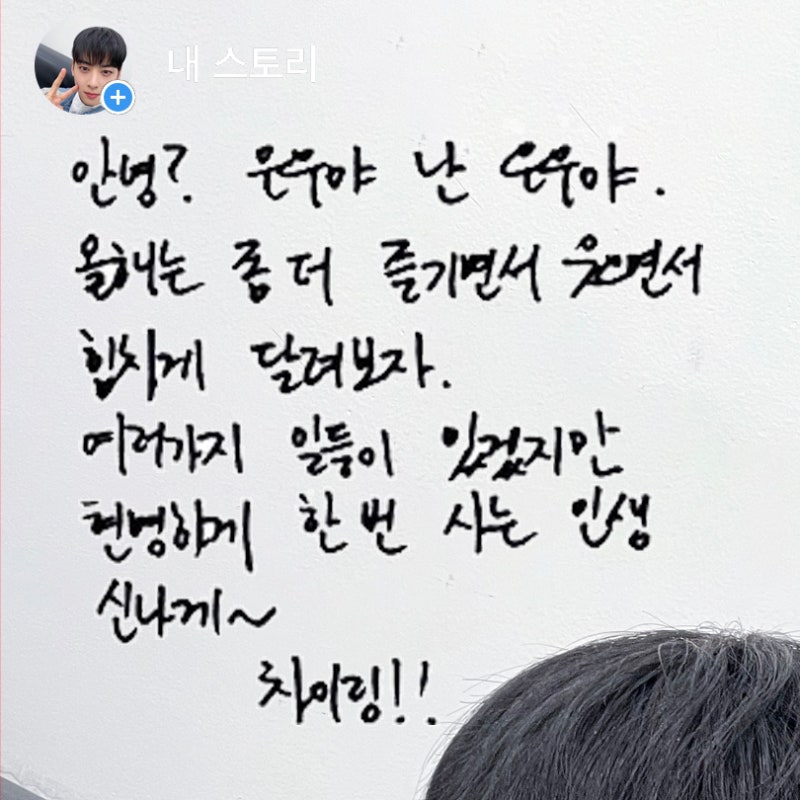 내 스토리
안녕? 은우야 난 은우야.
올해는 좀 더 즐기면서 웃으면서
힘차게 달려보자.
여러가지 일들이 있겠지만
현명하게 한 번 사는 인생
신나게~
차이링!!